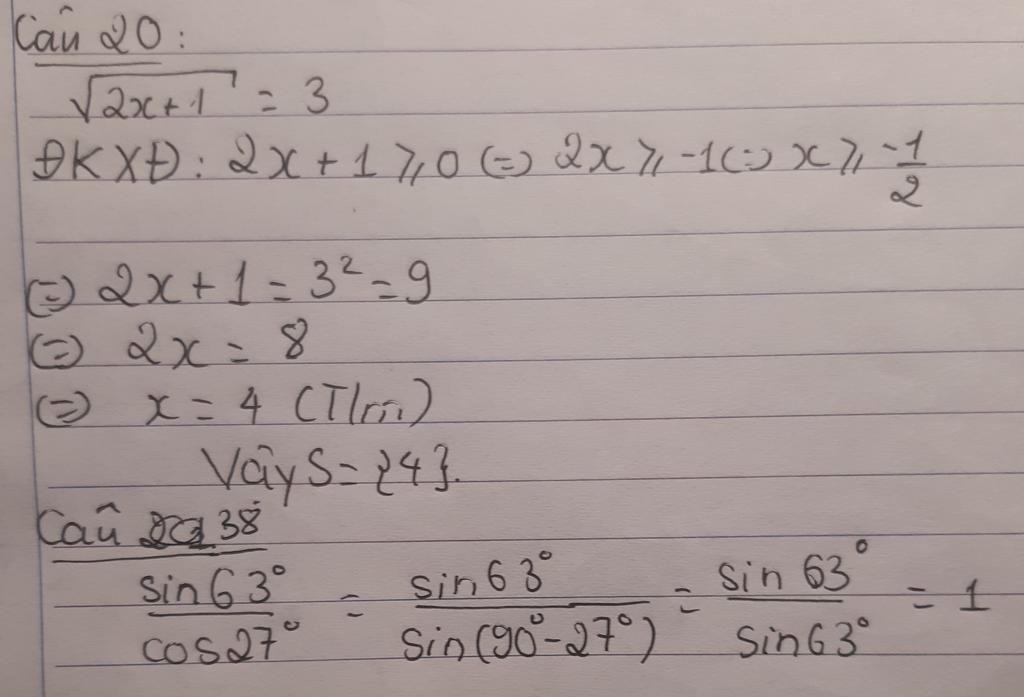 Câu 20:
√(2x+1) = 3
ĐKXĐ: 2x + 1 ⩾ 0 (=) 2x ⩾ -1 (=) x ⩾ -1/2
(=) 2x + 1 = 3² = 9
(=) 2x = 8
(=) x = 4 (T/m)
Vậy S = {4}.
Câu 38
sin63°/cos27° = sin63°/sin(90°-27°) = sin 63°/sin63° = 1